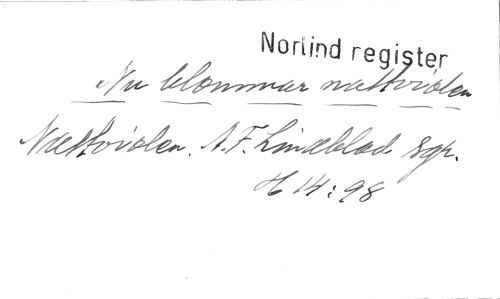 Norlind register
Nu blommar nattviolen
Nattviolen. A. F. Lindblad sgr.
H 14:98